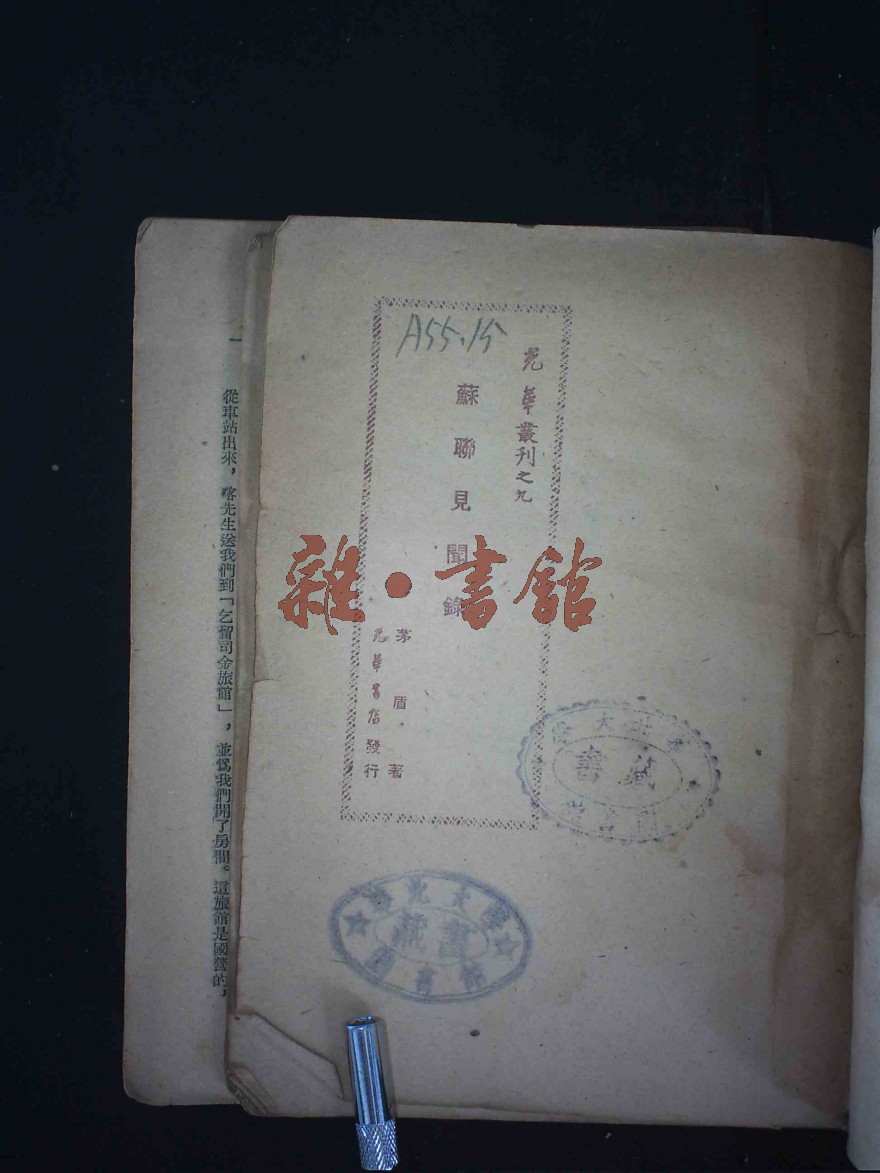 A55.15
光華叢刊之九
蘇聯見聞錄
茅盾著
光華書店發行
雜·書館
藏書
大學
藏書
一
從車站出來，喀先生送我們到「乞留司金旅館」，並爲我們開了房間。這旅館是國營的，